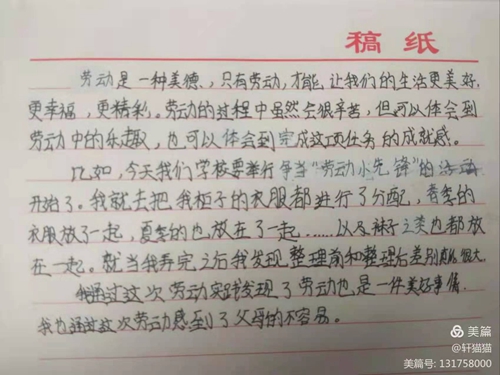 稿纸
劳动是一种美德,只有劳动,才能让我们的生活更美好,
更幸福,更精彩。劳动的过程中虽然会很辛苦,但可以体会到
劳动中的乐趣,也可以体会到完成这项任务的成就感。
比如,今天我们学校要举行争当“劳动小先锋”的活动
开始了。我就去把我柜子的衣服都进行了分配,春季的
衣服放了一起,夏季的也放在了一起……以及袜子之类也都放
在一起。就当我弄完之后我发现整理前和整理后差别真的很大。
我通过这次劳动实践发现了劳动也是一件美好事情,
我也通过这次劳动感到了父母的不容易。
美篇 @轩猫猫
美篇号: 131758000